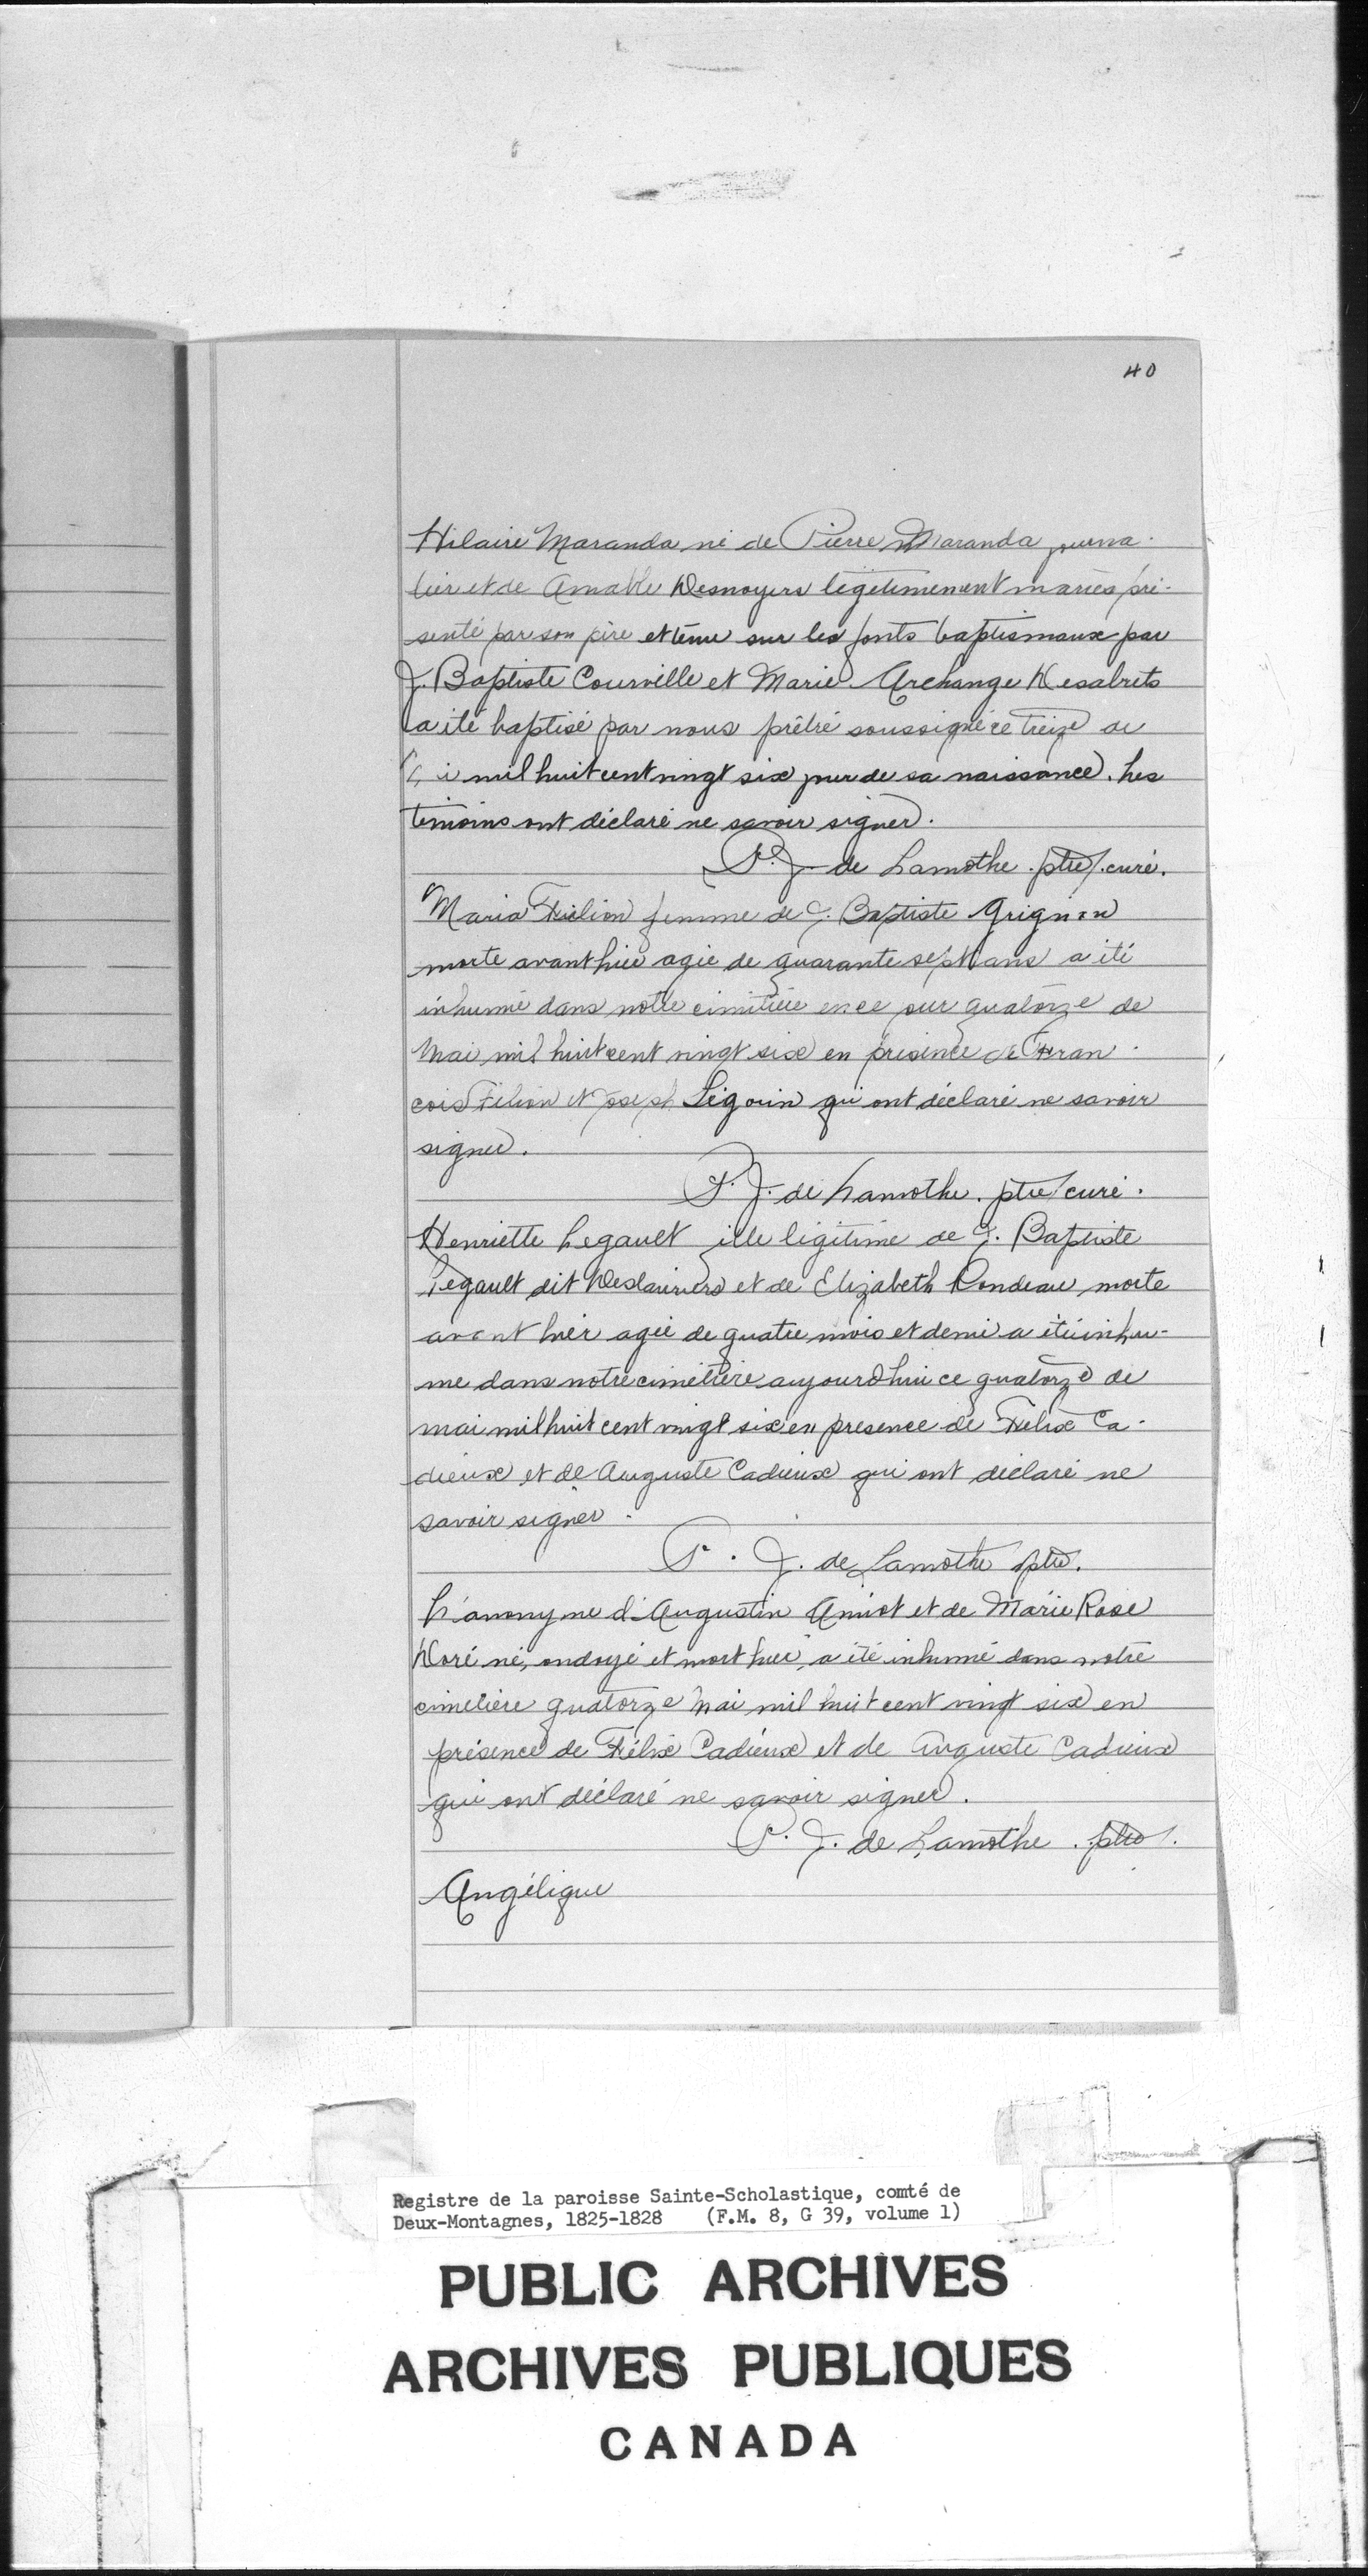 40
Hilaire Maranda né de Pierre Maranda journa-
lier et de Amable Desnoyers légitimement mariés pré-
senté par son père et tenu sur les fonts baptismaux par
J. Baptiste Courville et Marie Archange Desabrets
a été baptisé par nous prêtre soussigné ce treize de
mil huit cent vingt six jour de sa naissance. Les
témoins ont déclaré ne savoir signer.
P. J. de Lamothe. ptre. curé.
Maria Filion femme de J. Baptiste Grignon
morte avant hier agée de quarante sept ans a été
inhumé dans notre cimitière en ce jour quatorze de
Mai mil huit cent vingt six en présence de Fran-
cois Filion et Joseph Ligouin qui ont déclaré ne savoir
signer.
P. J. de Lamothe. ptre curé.
Henriette Legault ille légitime de J. Baptiste
Legault dit Deslauriers et de Elizabeth Rondeau morte
avant hier agée de quatre mois et demi a été inhu-
me dans notre cimetière aujourdhui ce quatorze de
mai mil huit cent vingt six en presence de Felix Ca-
dieux et de Auguste Cadieux qui ont déclaré ne
savoir signer.
P. J. de Lamothe ptre.
L'anonyme d'Augustin Amiot et de Marie Rose
Doré né, ondoyé et mort hier, a été inhumé dans notre
cimetière quatorze Mai mil huit cent vingt six en
présence de Félix Cadieux et de Auguste Cadieux
qui ont déclaré ne savoir signer.
P. J. de Lamothe. ptre.
Angélique
Registre de la paroisse Sainte-Scholastique, comté de
Deux-Montagnes, 1825-1828 (F.M. 8, G 39, volume 1)
PUBLIC ARCHIVES
ARCHIVES PUBLIQUES
CANADA